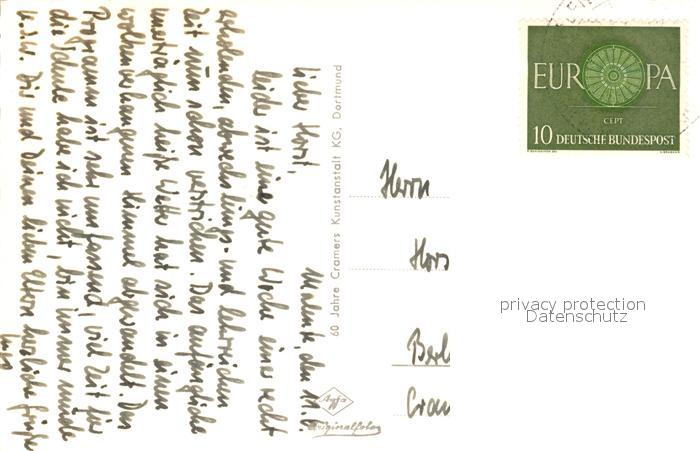 Malente, den 11.6.
Lieber Horst,
leider ist eine gute Woche einer recht
erholenden, abwechslungs- und lehrreichen
Zeit nun schon verstrichen. Das anfängliche
unerträglich heiße Wetter hat sich in einen
wolkenverhangenen Himmel abgewandelt. Das
Programm ist sehr umfassend, viel Zeit für
die Schule habe ich nicht, bin immer müde
u.s.w. Dir und Deinen lieben Eltern herzliche Grüße
60 Jahre Cramers Kunstanstalt KG, Dortmund
Agfa
Originalfoto
Herrn
Hors
Berl
Cram
EUROPA
CEPT
10 DEUTSCHE BUNDESPOST
privacy protection
Datenschutz